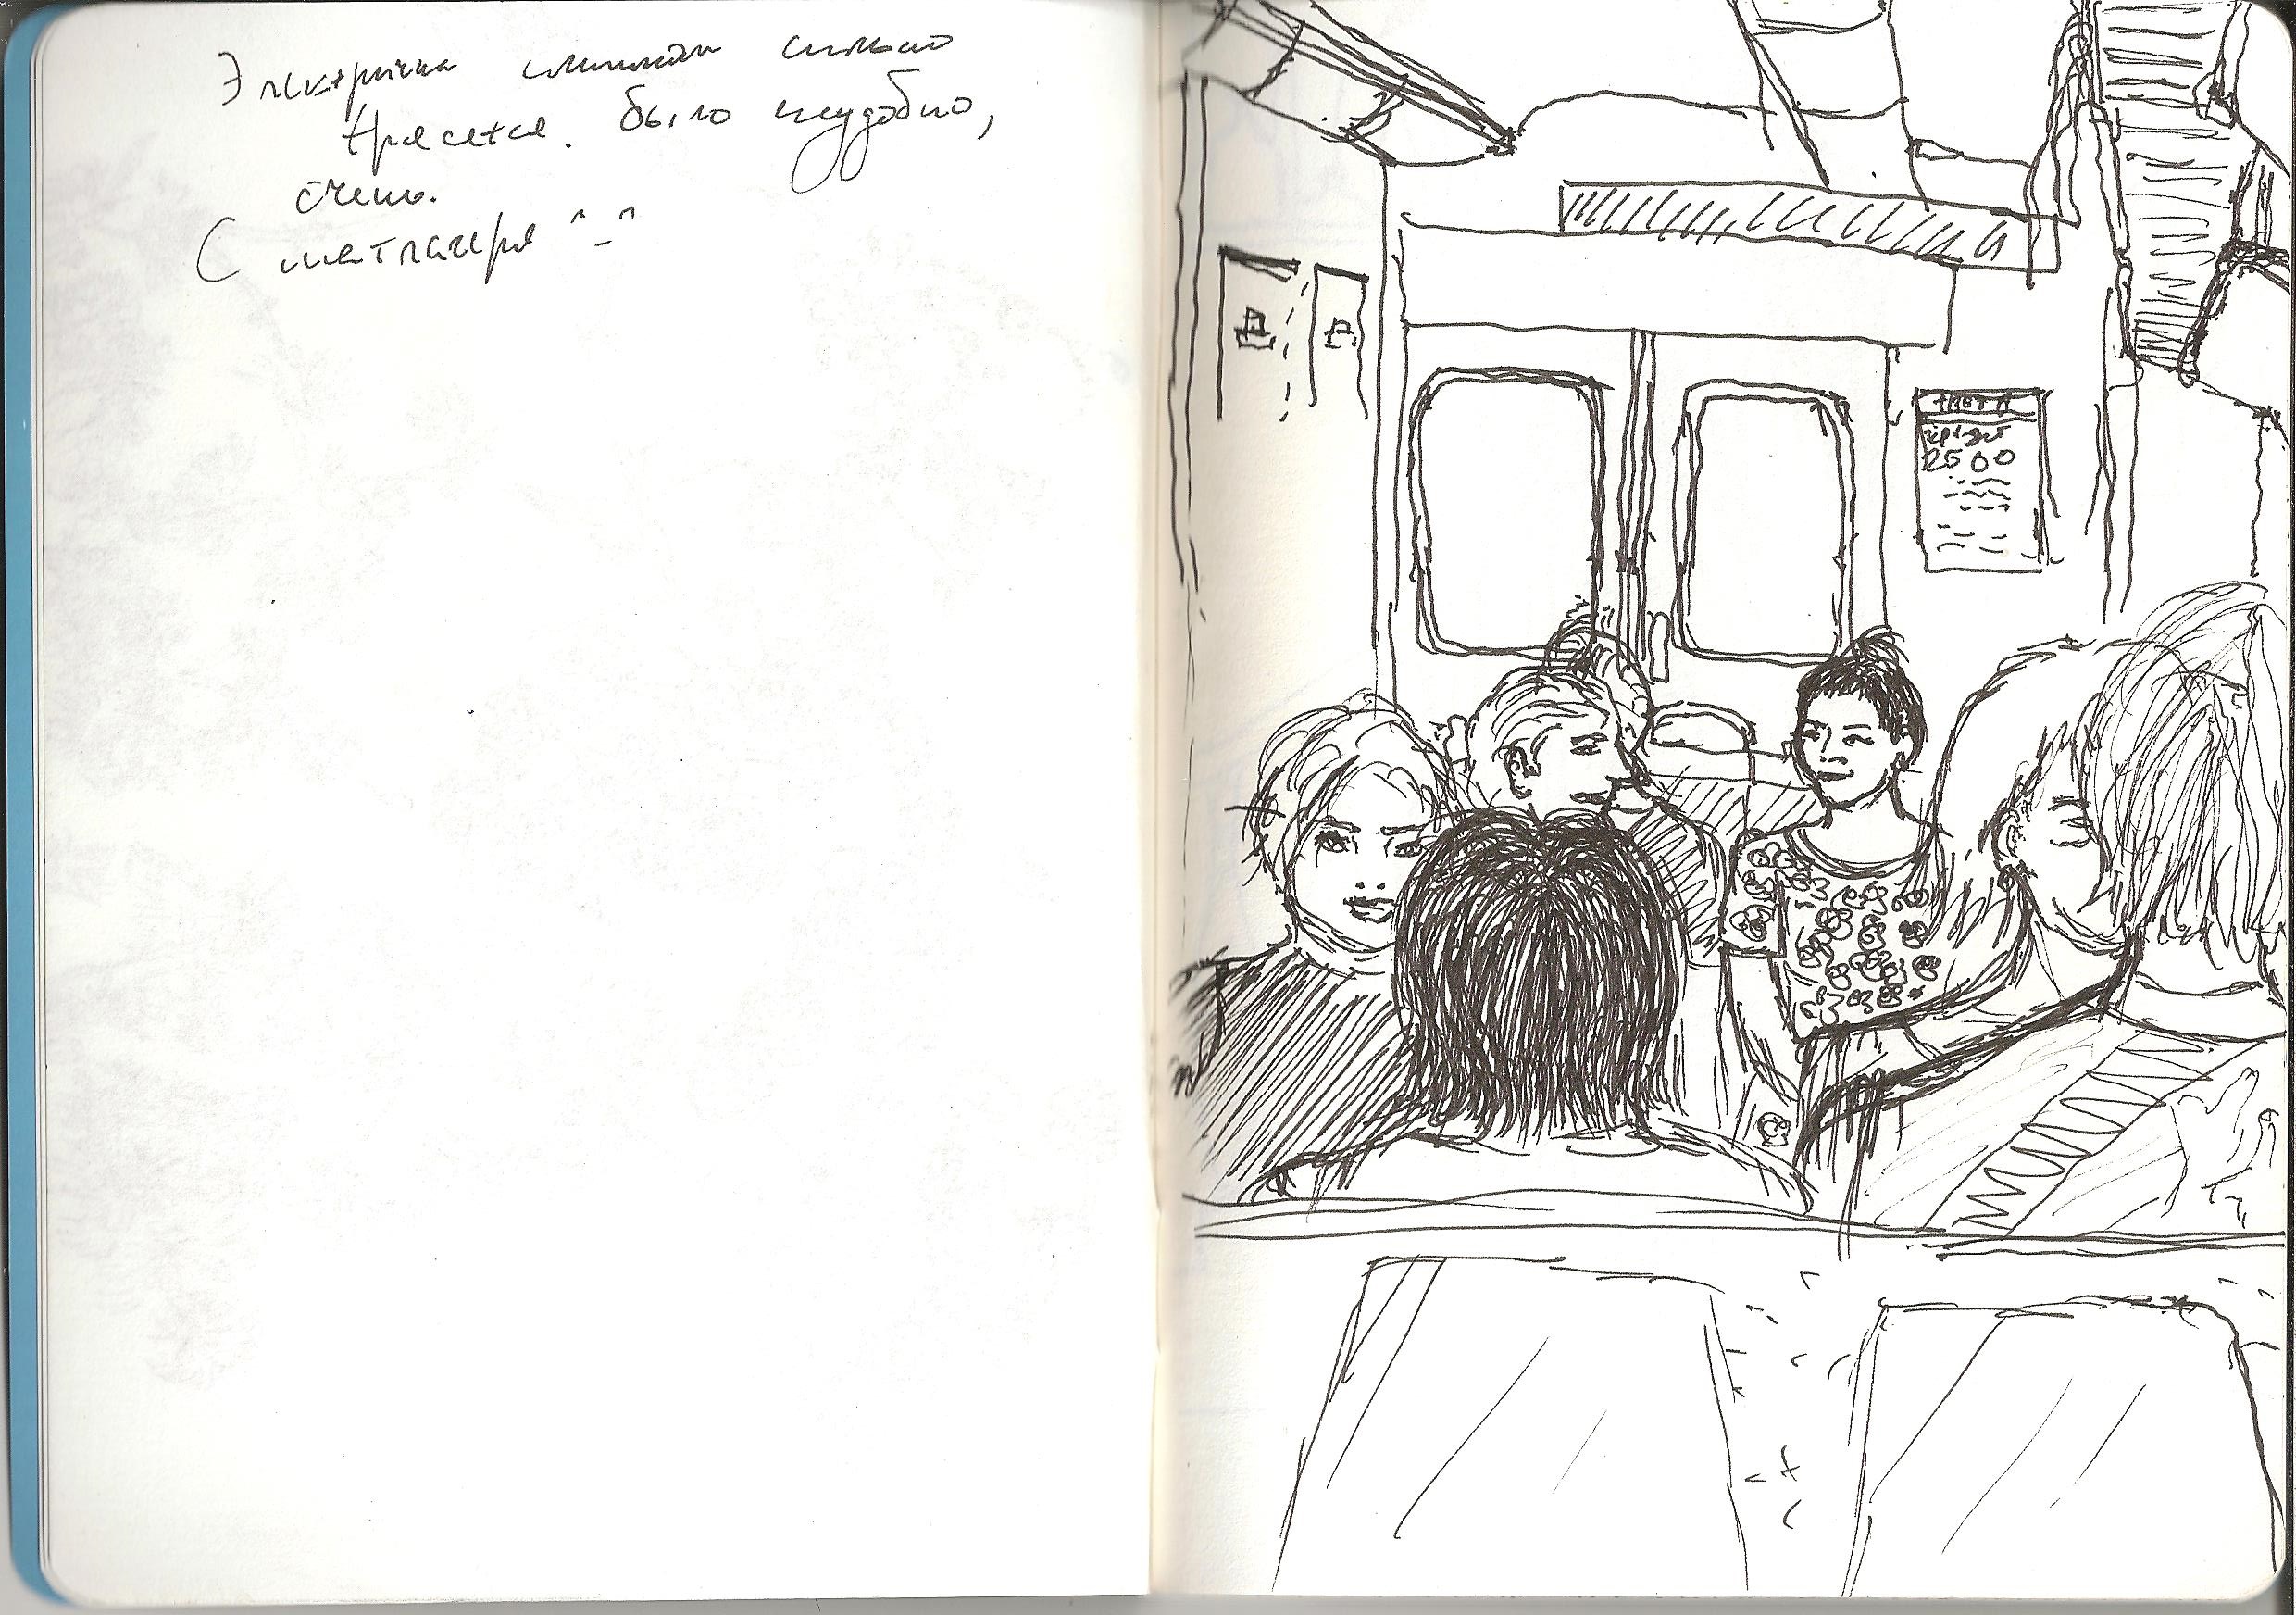 Электричка слишком сильно
трясется. было неудобно,
очень.
С натуры ^_^
кредит
2500